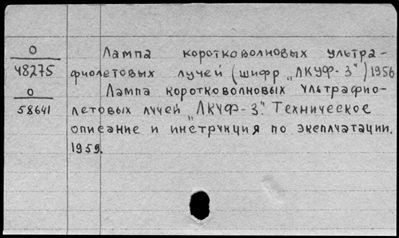 О
48275
О
58641
Лампа коротковолновых ультра-
фиолетовых лучей (шифр „ЛКУФ-3") 1956
Лампа коротковолновых ультрафио-
летовых лучей „ЛКУФ-3". Техническое
описание и инструкция по эксплуатации.
1959.